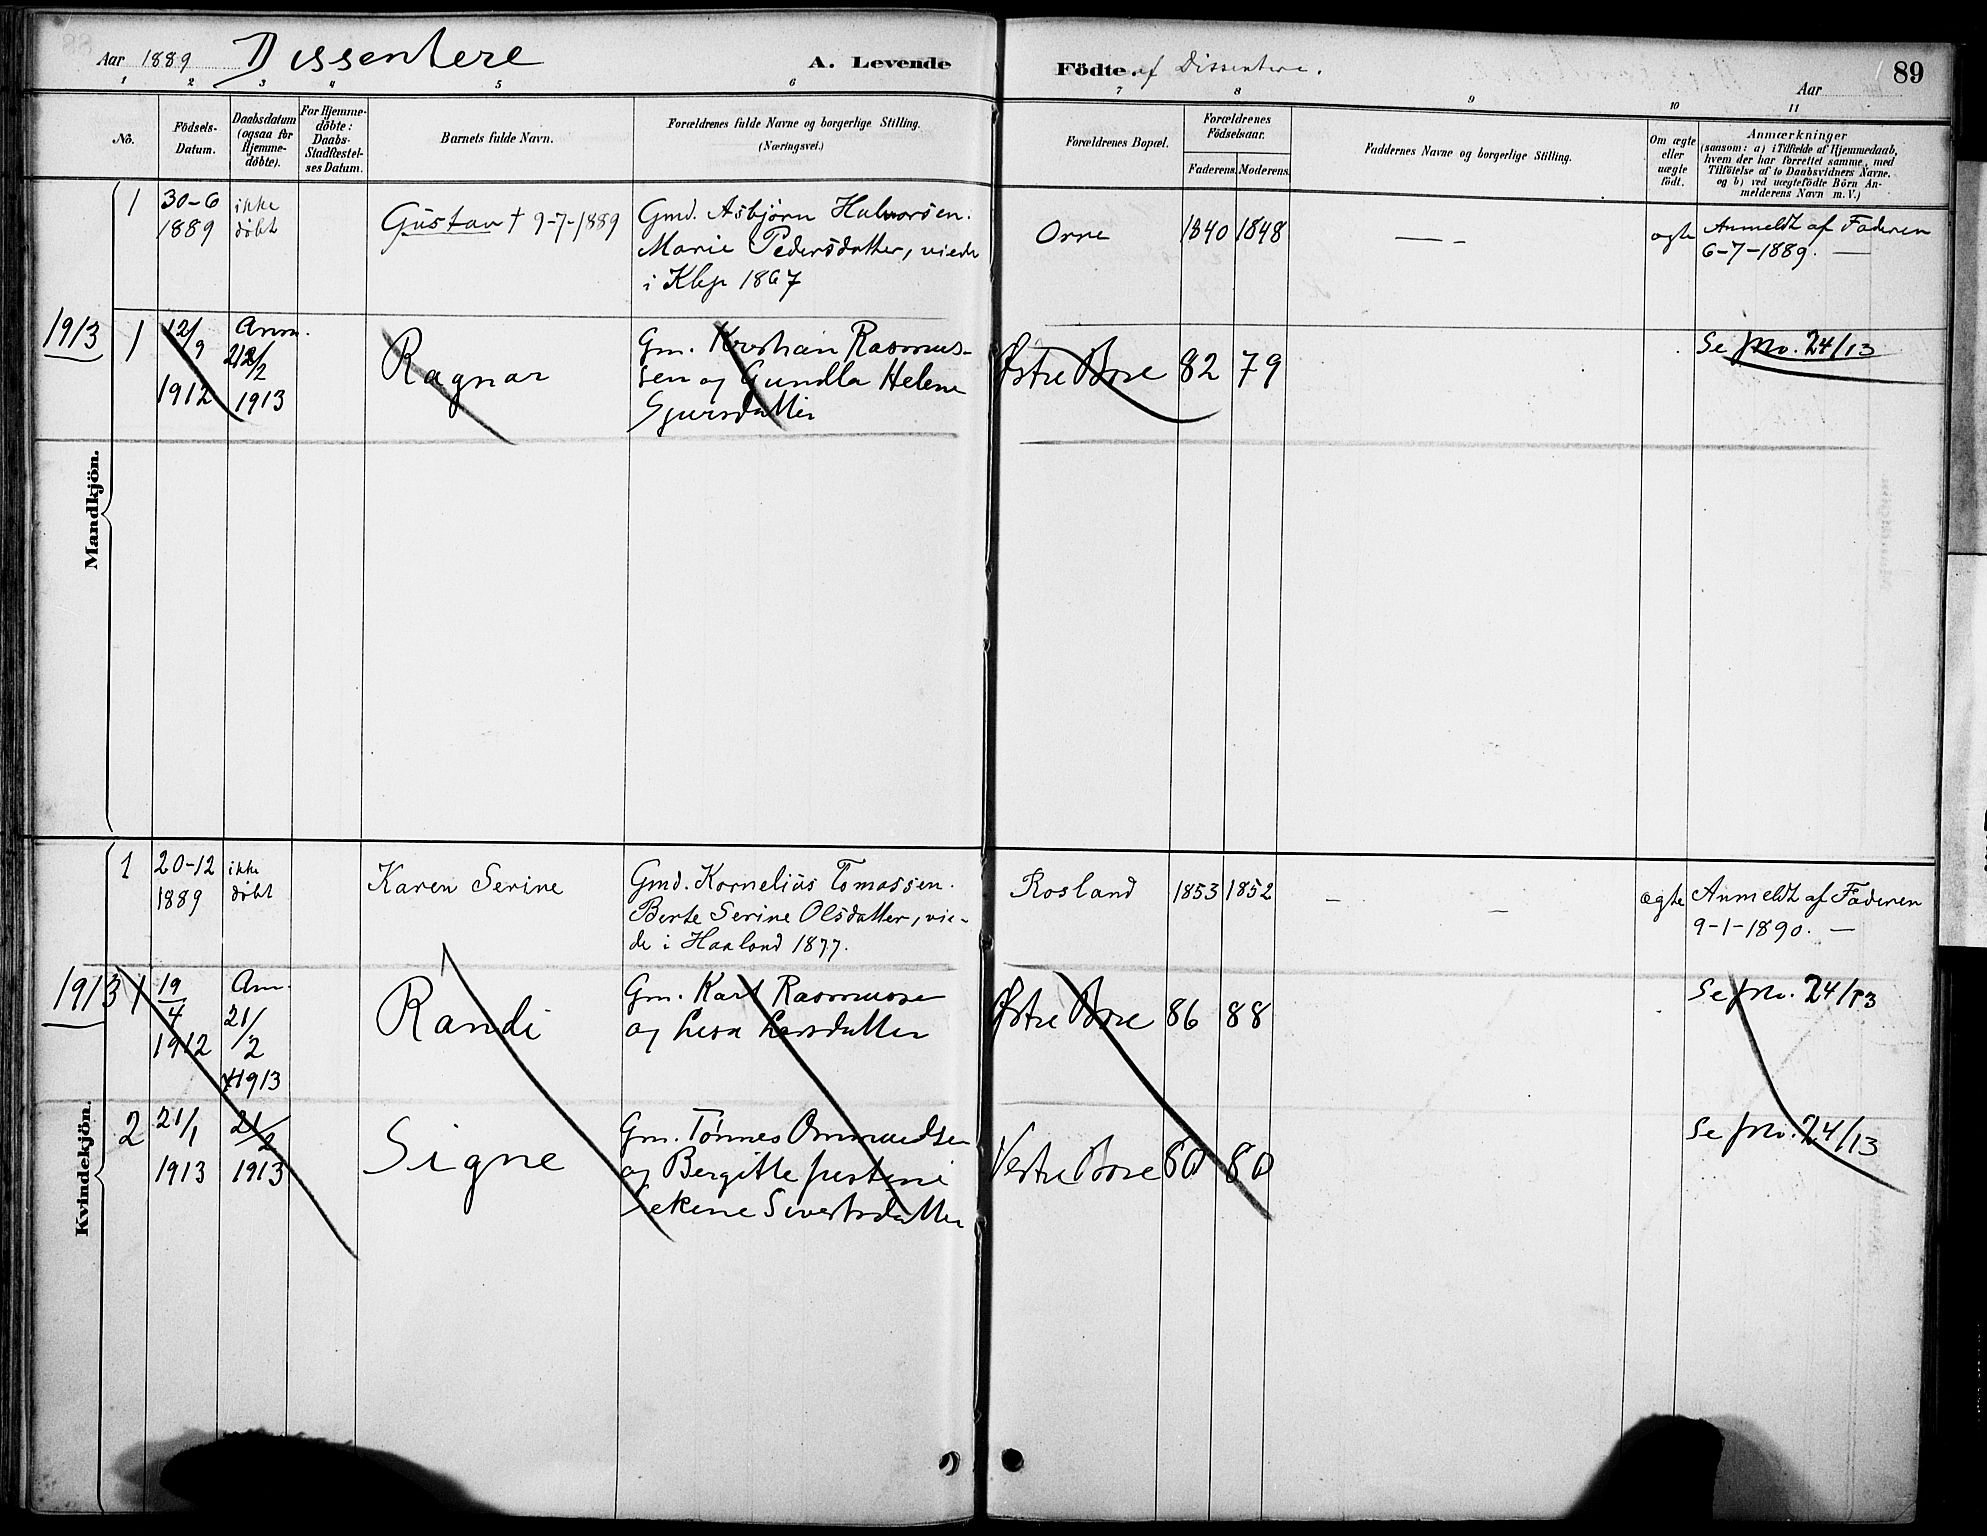 Aar 1889 Dissentere A. Levende Födte. af Dissentere. Aar 89
1 2 3 4 5 6 7 8 9 10 11
No.
Födsels-
Datum.
Daabsdatum
(ogsaa for
Hjemme-
döbte).
For Hjemme-
döbte:
Daabs-
Stadfæstel-
ses Datum.
Barnets fulde Navn.
Forældrenes fulde Navne og borgerlige Stilling.
(Næringsvei.)
Forældrenes Bopæl.
Forældrenes
Födselsaar.
Faderens. Moderens.
Faddernes Navne og borgerlige Stilling.
Om ægte
eller
uægte
födt.
Anmærkninger
(saasom: a) i Tilfælde af Hjemmedaab,
hvem der har forrettet samme, med
Tilföielse af to Daabsvidners Navne,
og b) ved uægtefödte Börn An-
melderens Navn m. V.)
Mandkjön.
1
30-6
1889
ikke
döbt
Gustav † 9-7-1889
Gmd. Asbjørn Halvorsen.
Marie Pedersdatter, viede
i Klep 1867
Orre
1840 1848
— -
ægte
Anmeldt af Faderen
6-7-1889. —
1913
1
12/9
1912
Anm.
21/2
1913
Ragnar
Gm. Kristian Rasmus-
sen og Gundla Helene
Sjursdatter
Østre Bore
82 79
Se No. 24/13
Kvindekjön.
1
20-12
1889
ikke
döbt
Karen Serine
Gmd. Kornelius Tomassen.
Berte Serine Olsdatter, vie-
de i Haaland 1877.
Rosland
1853 1852
- -
ægte
Anmeldt af Faderen
9-1-1890. —
1913
1
19/4
1912
Am.
21/2
1913
Randi
Gm. Karl Rasmussen
og Lisa Larsdatter
Østre Bore
86 88
Se No. 24/13
2
21/1
1913
21/2
1913
Signe
Gm. Tønnes Ommundsen
og Bergitte Justine
Sivertsdatter
Vestre Bore
80 80
Se No. 24/13